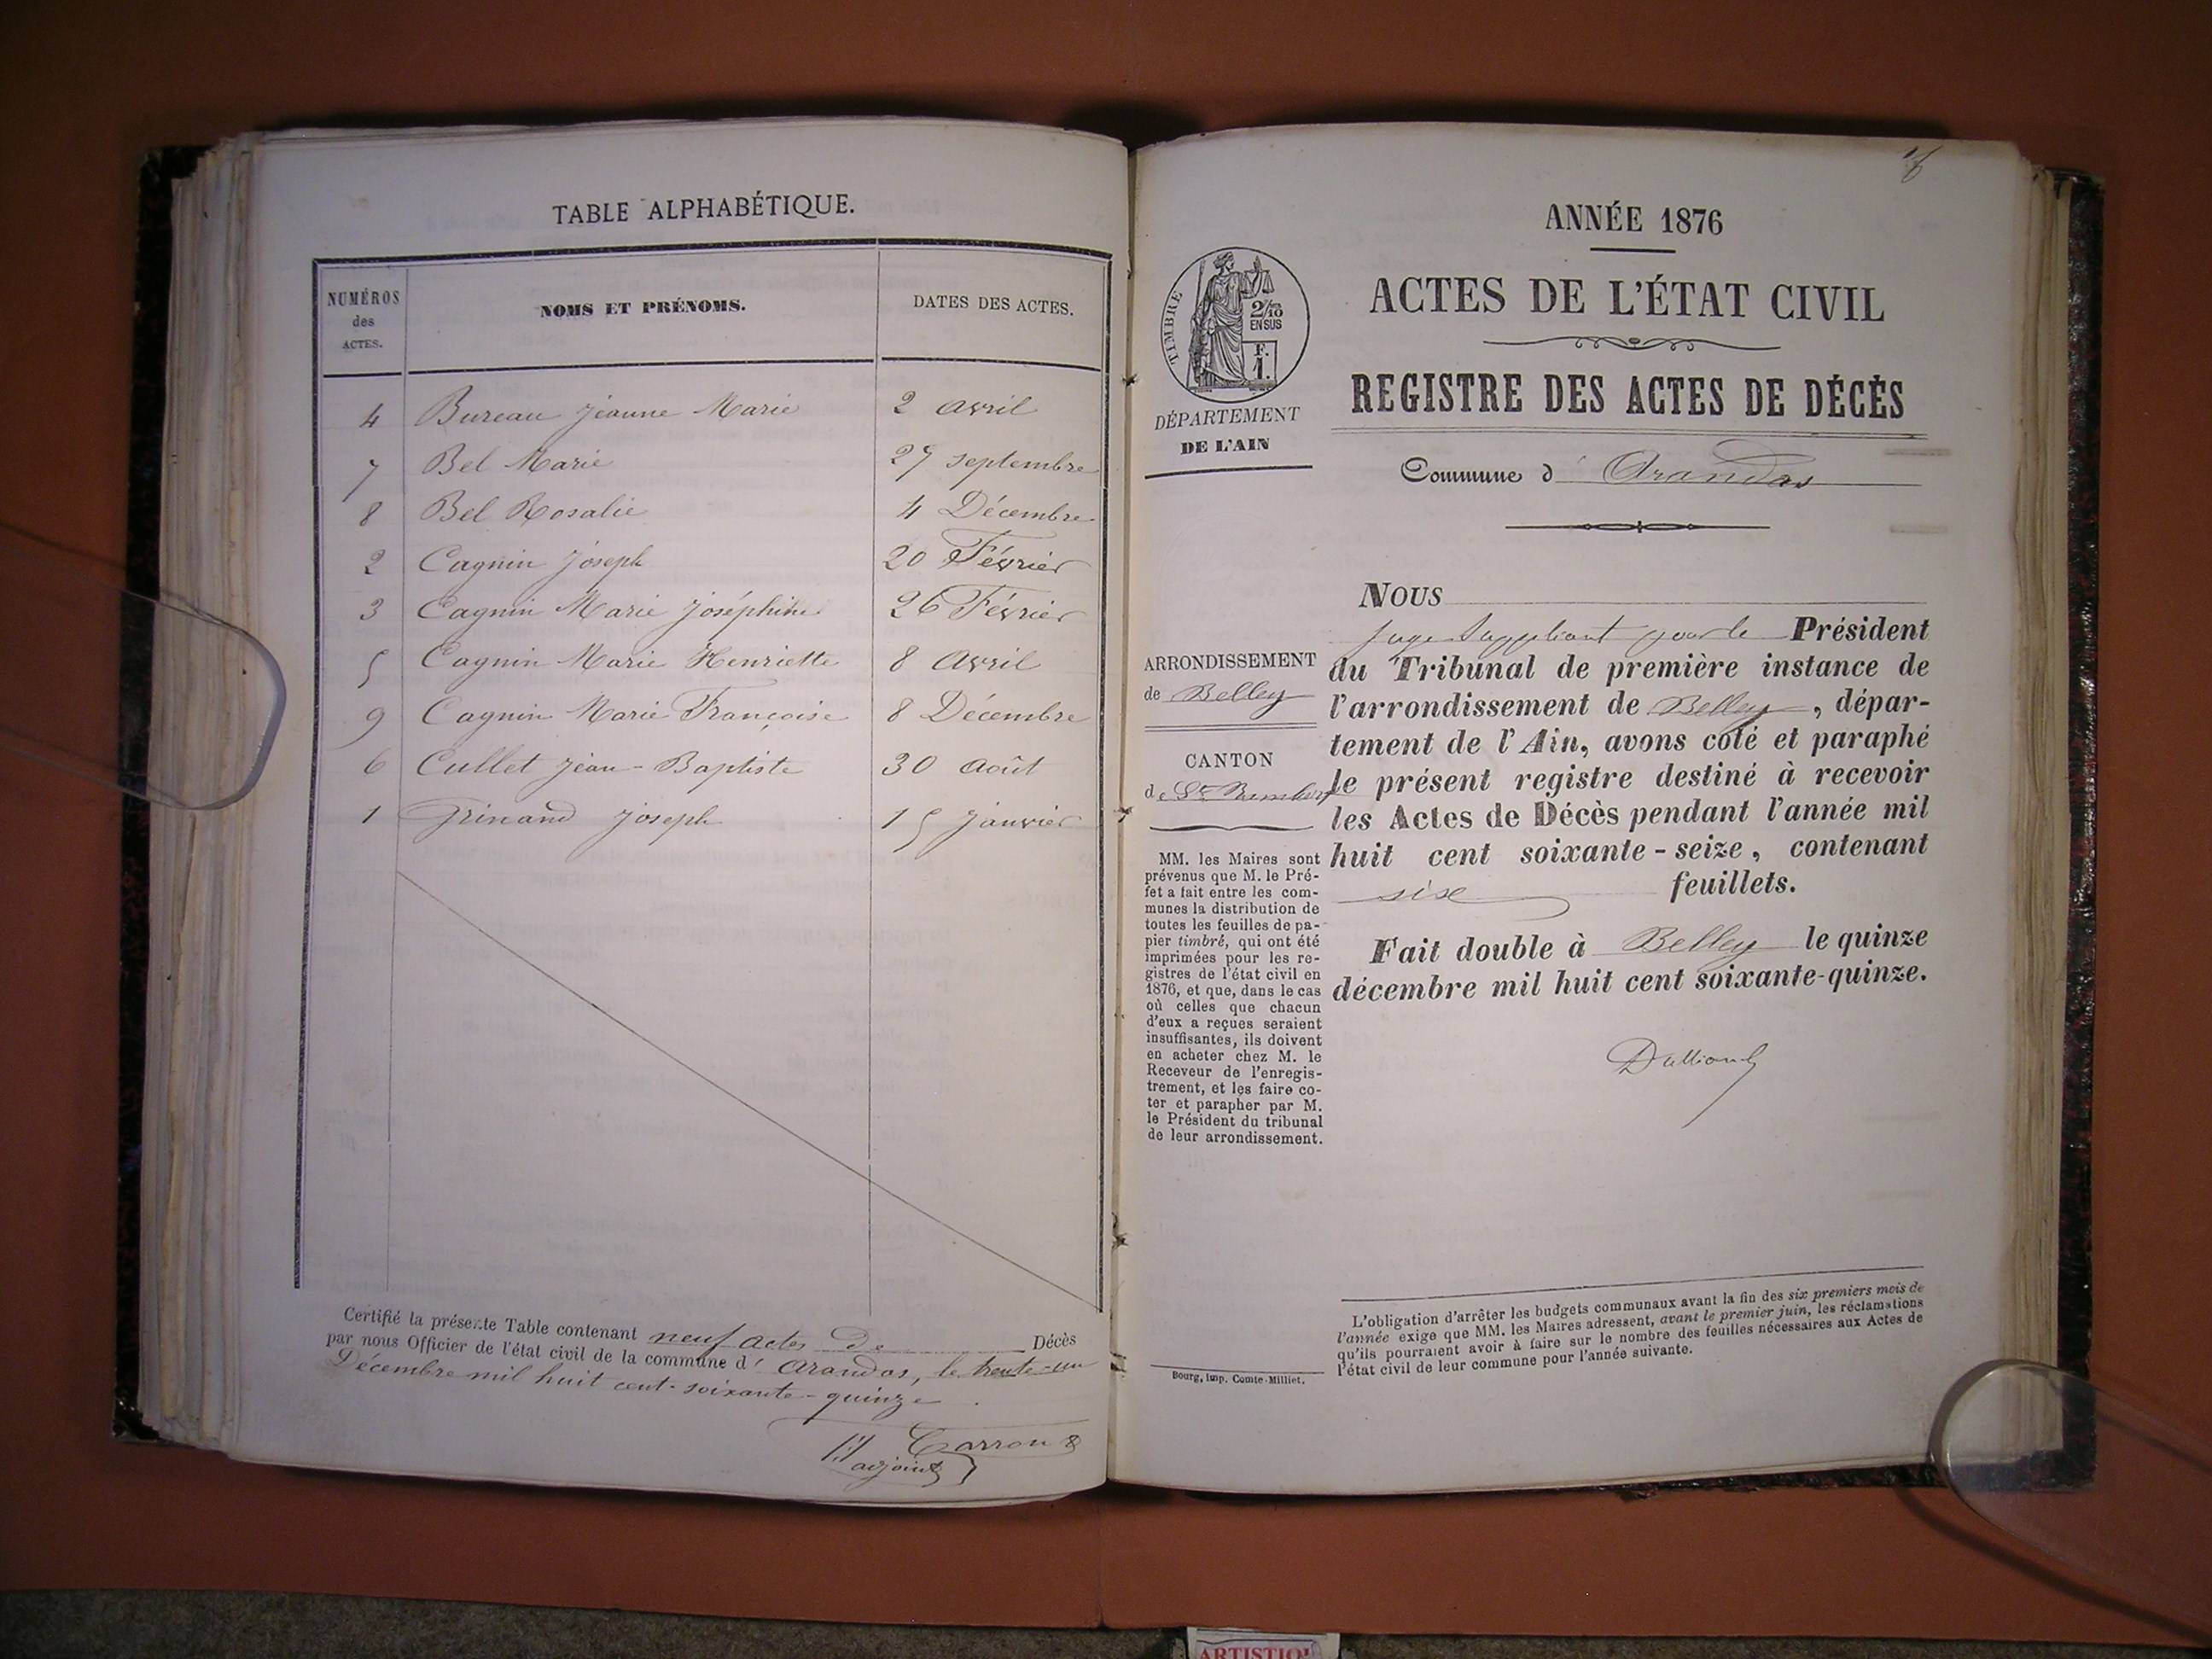 TABLE ALPHABÉTIQUE.
NUMÉROS
des
ACTES.
NOMS ET PRÉNOMS.
DATES DES ACTES.
4 Bureau Jeanne Marie 2 avril
7 Bel Marie 27 septembre
8 Bel Rosalie 4 Décembre
2 Cagnin Joseph 20 Février
3 Cagnin Marie Joséphine 26 Février
5 Cagnin Marie Henriette 8 avril
9 Cagnin Marie Françoise 8 Décembre
6 Cullet Jean-Baptiste 30 août
1 Grinand Joseph 15 janvier
Certifié la présente Table contenant neuf actes de Décès
par nous Officier de l'état civil de la commune d' arandas, le trente-un
Décembre mil huit cent-soixante-quinze.
Carron
l'adjoint
ANNÉE 1876
ACTES DE L'ÉTAT CIVIL
REGISTRE DES ACTES DE DÉCÈS
Commune d' Arandas
TIMBRE
2/10
EN SUS
F.
1.
DÉPARTEMENT
DE L'AIN
ARRONDISSEMENT
de Belley
CANTON
de St Rambert
MM. les Maires sont
prévenus que M. le Pré-
fet a fait entre les com-
munes la distribution de
toutes les feuilles de pa-
pier timbré, qui ont été
imprimées pour les re-
gistres de l'état civil en
1876, et que, dans le cas
où celles que chacun
d'eux a reçues seraient
insuffisantes, ils doivent
en acheter chez M. le
Receveur de l'enregis-
trement, et les faire co-
ter et parapher par M.
le Président du tribunal
de leur arrondissement.
Bourg, imp. Comte-Milliet.
NOUS
Juge Suppléant pour le Président
du Tribunal de première instance de
l'arrondissement de Belley, dépar-
tement de l'Ain, avons coté et paraphé
le présent registre destiné à recevoir
les Actes de Décès pendant l'année mil
huit cent soixante-seize, contenant
six feuillets.
Fait double à Belley le quinze
décembre mil huit cent soixante-quinze.
L'obligation d'arrêter les budgets communaux avant la fin des six premiers mois de
l'année exige que MM. les Maires adressent, avant le premier juin, les réclamations
qu'ils pourraient avoir à faire sur le nombre des feuilles nécessaires aux Actes de
l'état civil de leur commune pour l'année suivante.